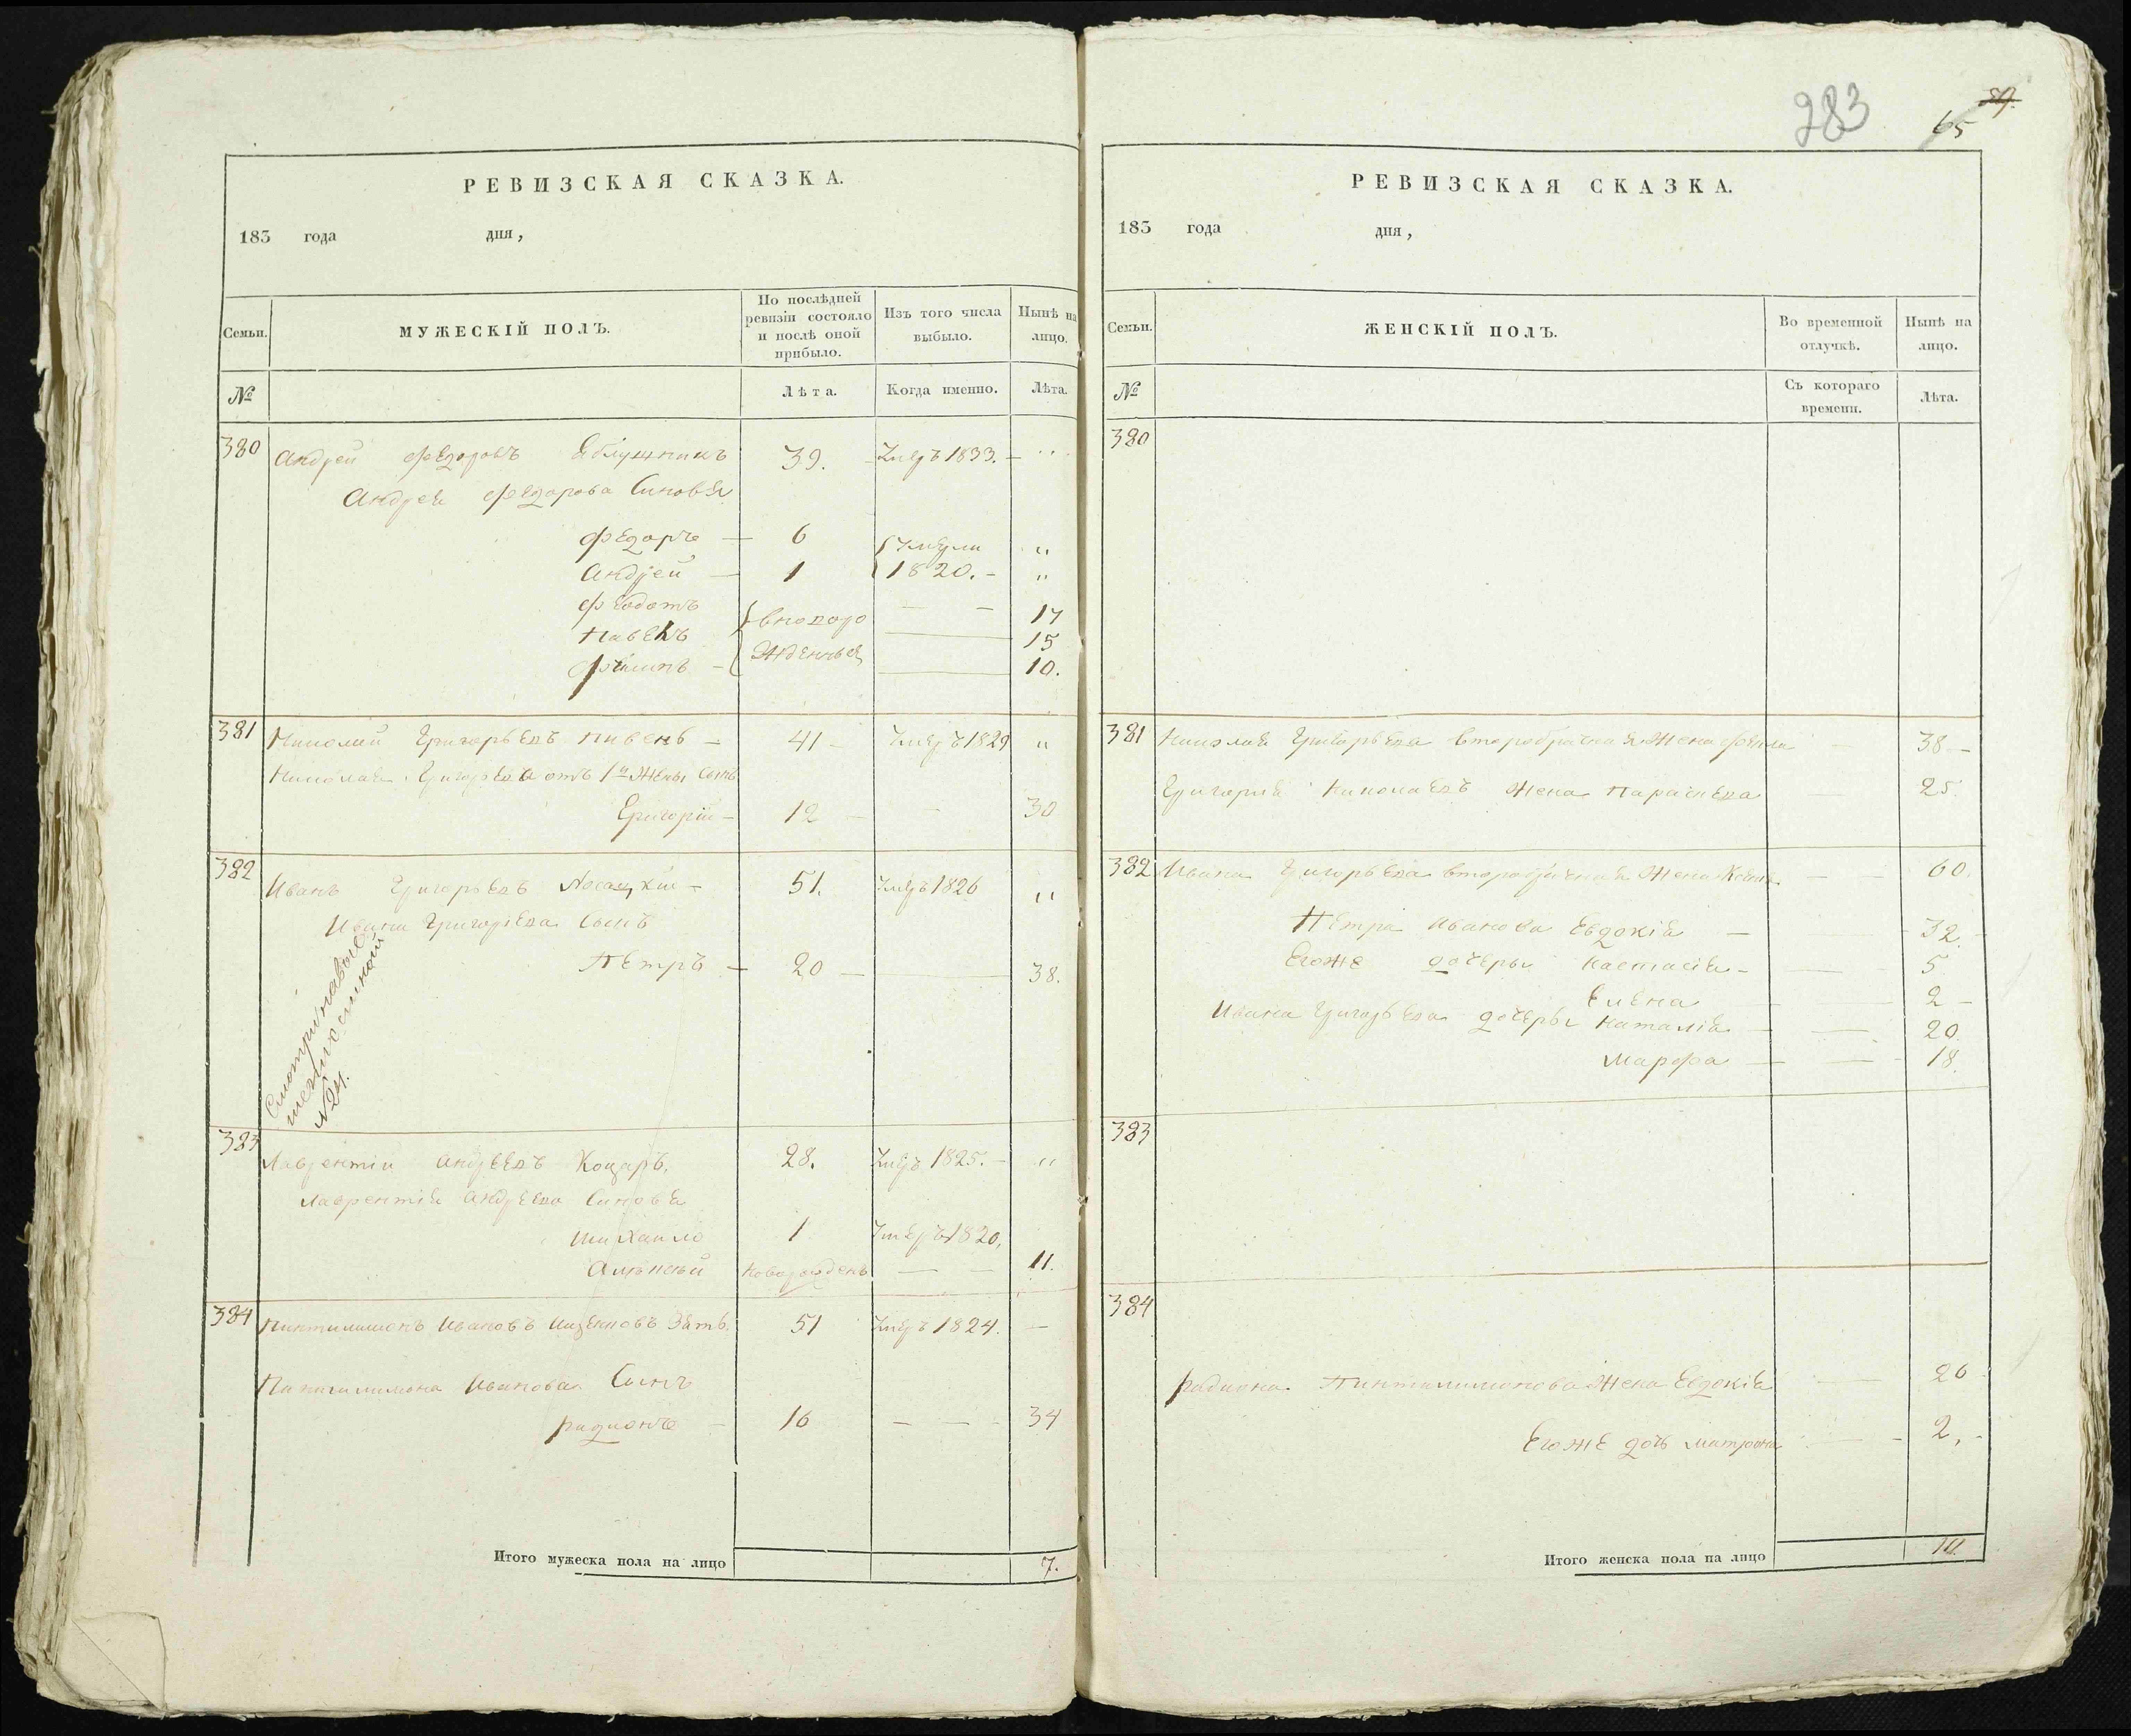 РЕВИЗСКАЯ СКАЗКА.
183 года дня,
Семьи.
МУЖЕСКІЙ ПОЛЪ.
По послѣдней
ревизіи состояло
и послѣ оной
прибыло.
Изъ того числа
выбыло.
Нынѣ на
лицо.
№
Лѣта.
Когда именно.
Лѣта.
380 Андрей Федоровъ Яблушникъ 39. Умеръ 1833. "
Андрея Федорова Сыновья
Федоръ 6 Умерли "
Андрей 1 1820. "
Федотъ 17
Павелъ вноворо 15
Филипъ жденныя 10.
381 Николай Григорьевъ Пивень 41 Умеръ 1829 "
Николая Григорьева отъ 1й Жены Сынъ
Григорій 12 30
382 Иванъ Григорьевъ Носацкій 51. Умеръ 1826 "
Ивана Григорьева Сынъ
Петръ 20 38.
№ 24.
383 Лаврентій Андреевъ Коцарь. 28. Умеръ 1825. "
Лаврентія Андреева Сыновья
Михайло 1 Умеръ 1820,
Алексей новорожденъ 11.
384 Пантилимонъ Ивановъ Зять. 51 Умеръ 1824.
Пантилимона Иванова Сынъ
Радионъ 16 34
Итого мужеска пола на лицо 7.
283
65
59.
РЕВИЗСКАЯ СКАЗКА.
183 года дня,
Семьи.
ЖЕНСКІЙ ПОЛЪ.
Во временной
отлучкѣ.
Нынѣ на
лицо.
№
Съ котораго
времени.
Лѣта.
380
381 Николая Григорьева второбрачная Жена 38
Григорія Николаевъ Жена Параскева 25.
382 Ивана Григорьева второбрачная Жена 60.
Петра Иванова Евдокія 32.
Егоже дочеры Настасія 5
Елена 2
Ивана Григорьева дочеры Наталія 20.
Марфа 18.
383
384
Радиона Пантилимонова Жена Евдокія 26
Егоже дочь Матрона 2,
Итого женска пола на лицо 10